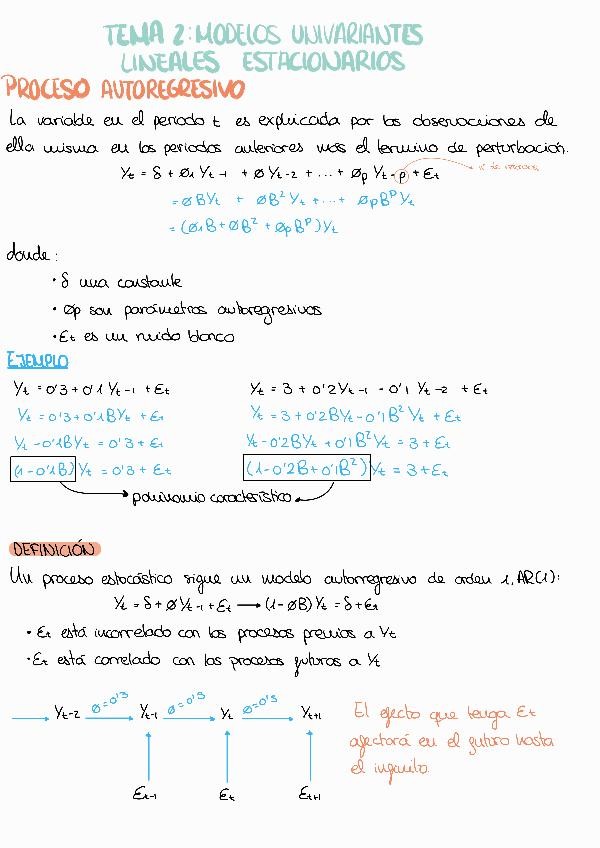 TEMA 2: MODELOS UNIVARIANTES
LINEALES ESTACIONARIOS
PROCESO AUTOREGRESIVO
La variable en el periodo t es explicada por las observaciones de
ella misma en los periodos anteriores más el termino de perturbación.
Yt = δ + Ø1 Yt-1 + Ø Yt-2 + ... + Øp Yt-p + Ɛt
= ØBYt + ØB²Yt + ... + ØpBᴾYt
= (Ø1B + ØB² + ØpBᴾ)Yt
donde:
· δ una constante
· Øp son parámetros autoregresivos
· Ɛt es un ruido blanco
EJEMPLO
Yt = 0'3 + 0'1 Yt-1 + Ɛt    Yt = 3 + 0'2Yt-1 - 0'1 Yt-2 + Ɛt
Yt = 0'3 + 0'1BYt + Ɛt    Yt = 3 + 0'2BYt - 0'1B²Yt + Ɛt
Yt - 0'1BYt = 0'3 + Ɛt    Yt - 0'2BYt + 0'1B²Yt = 3 + Ɛt
(1 - 0'1B)Yt = 0'3 + Ɛt    (1 - 0'2B + 0'1B²)Yt = 3 + Ɛt
polinomio característico
DEFINICIÓN
Un proceso estocástico sigue un modelo autorregresivo de orden 1, AR(1):
Yt = δ + ØYt-1 + Ɛt → (1 - ØB)Yt = δ + Ɛt
· Ɛt está incorrelado con los procesos previos a Yt
· Ɛt está correlado con los procesos futuros a Yt
Ø=0'3 Ø=0'3 Ø=0'3
Yt-2 Yt-1 Yt Yt+1
Ɛt-1 Ɛt Ɛt+1
El efecto que tenga Ɛt
afectará en el futuro hasta
el infinito.